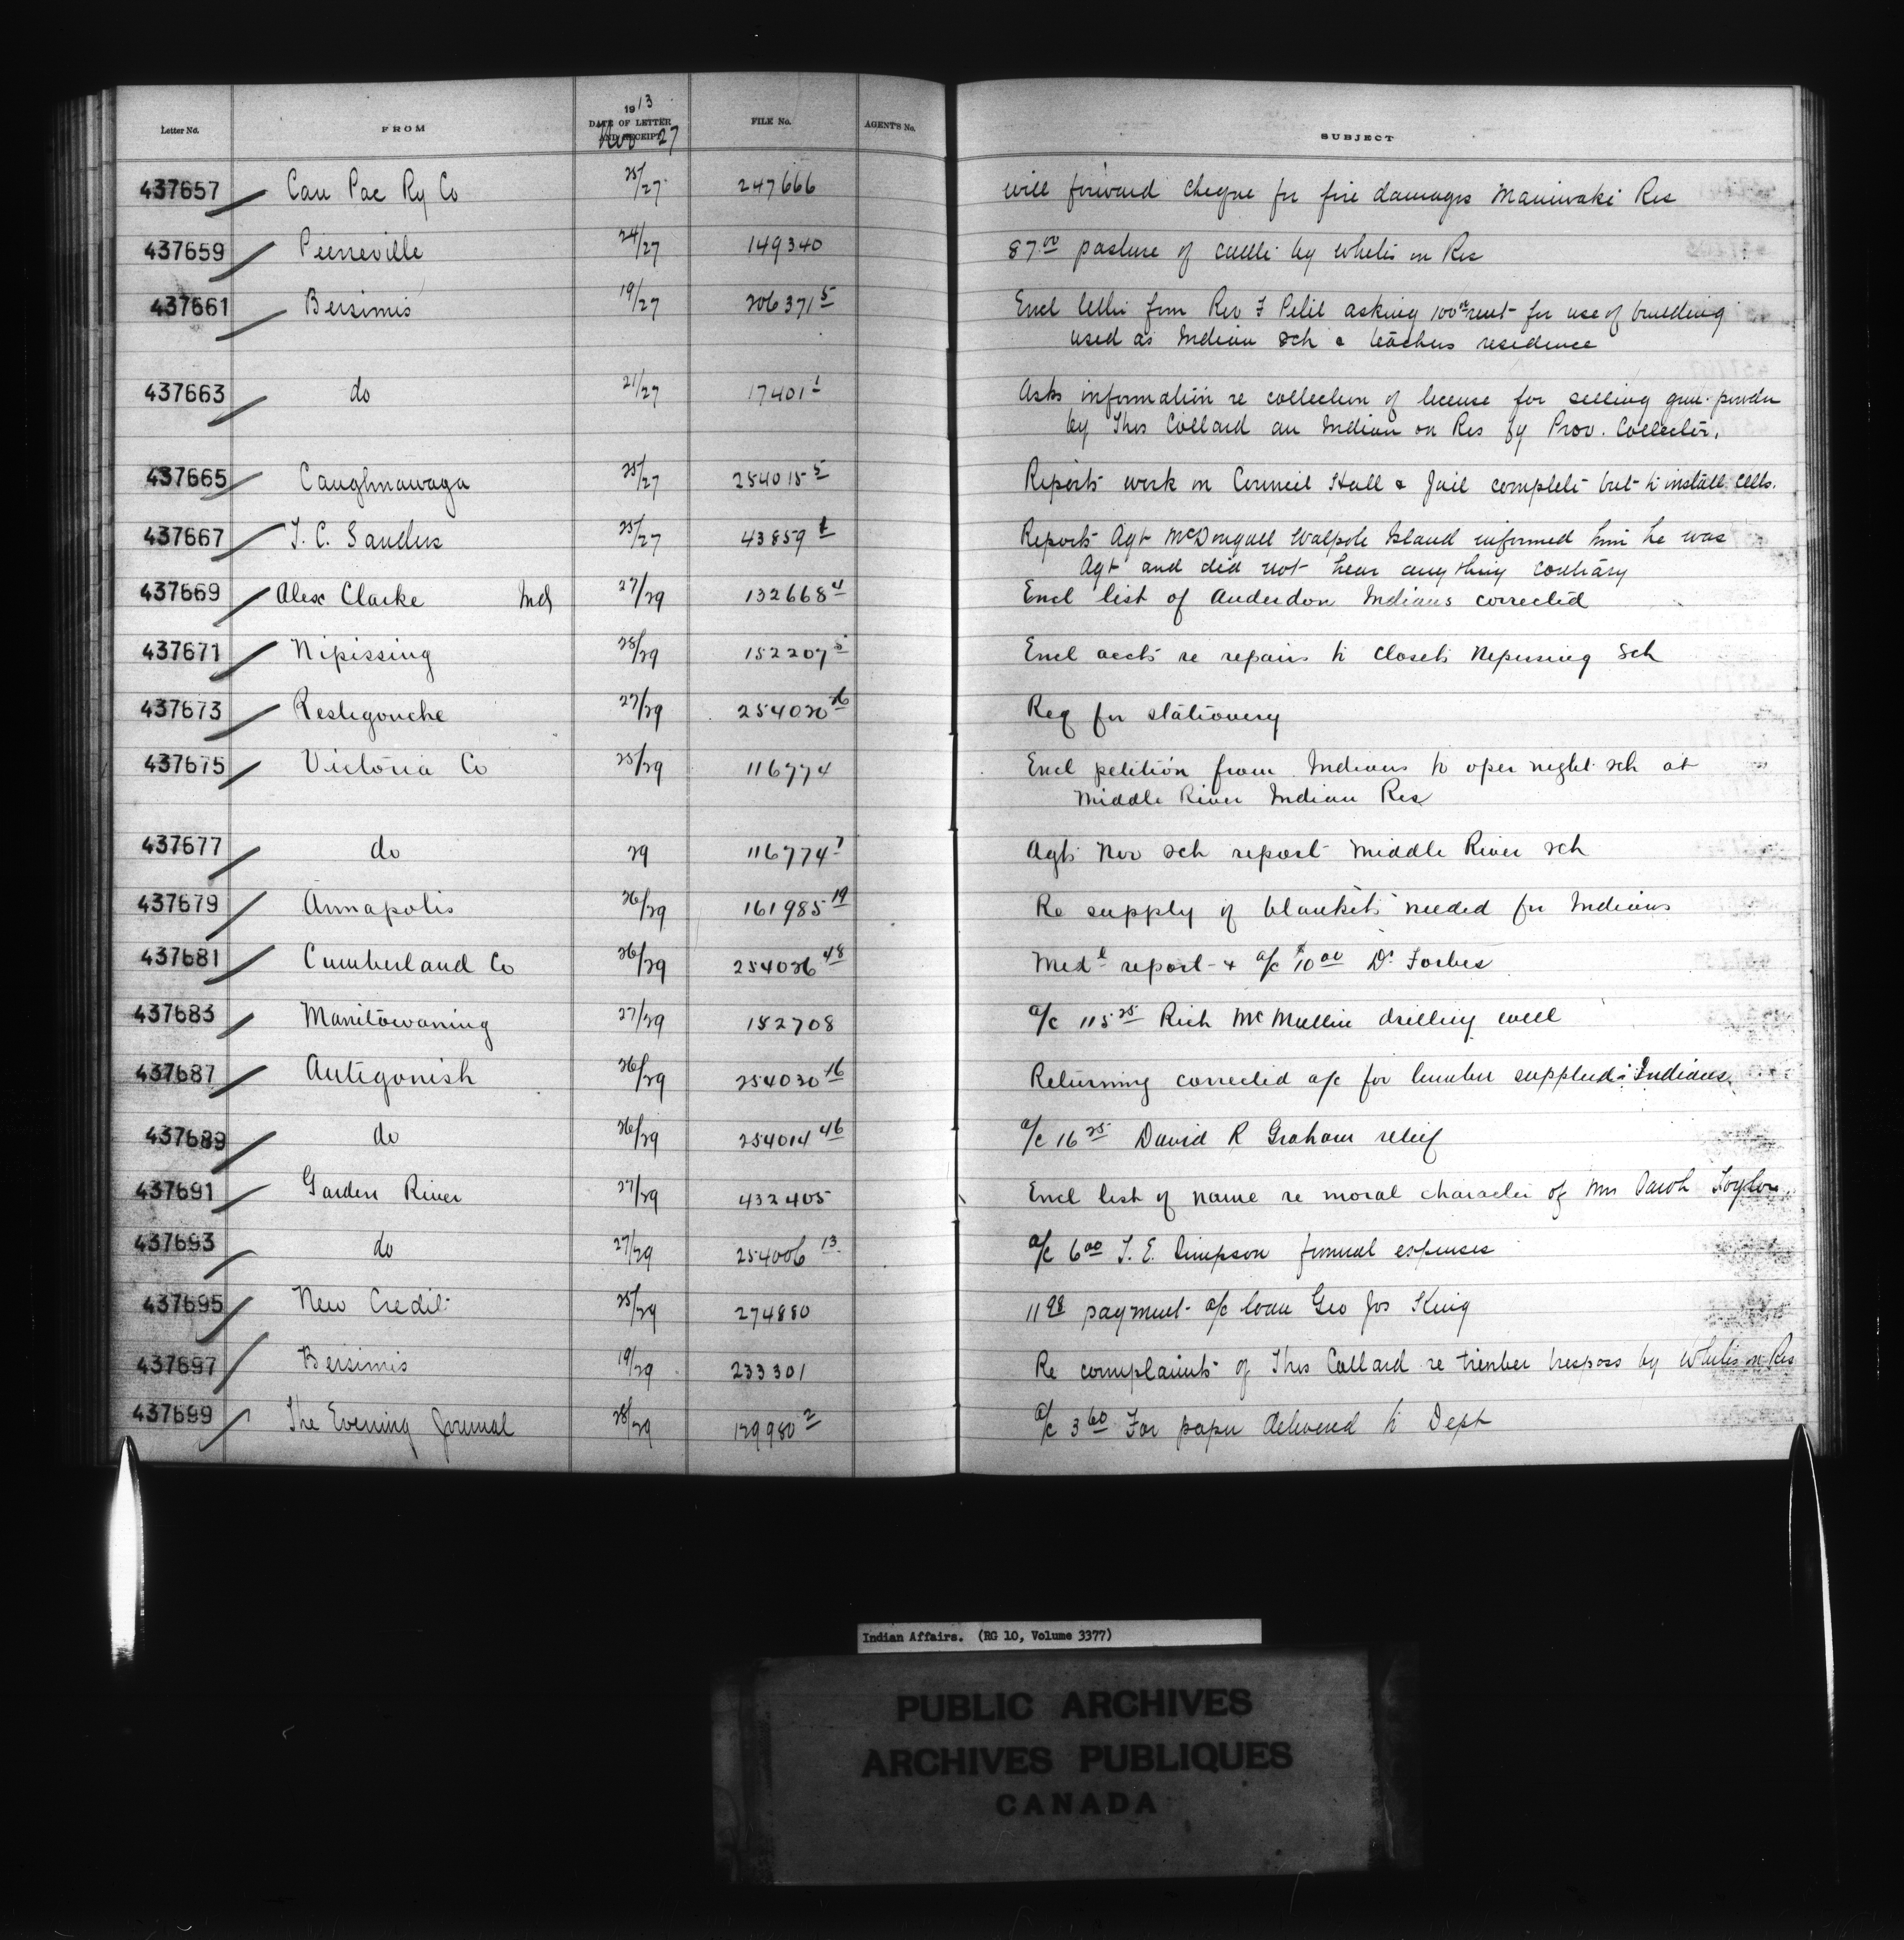 Letter No. FROM 1913 DATE OF LETTER AND RECEIPT Nov 27 FILE No. AGENT'S No. SUBJECT
437657 Can Pac Ry Co 25/27 247666 will forward cheque for fire damages Maniwaki Res
437659 Pierreville 24/27 149340 87.00 pasture of cattle by whites on Res
437661 Bersimis 19/27 206371 5 Encl letter from Rev F Petit asking 100 00 rent for use of building
used as Indian Sch & teachers residence
437663 do 21/27 17401 1 Asks information re collection of license for selling gun powder
by Thos Collard an Indian on Res by Prov. Collector.
437665 Caughnawaga 25/27 254015 5 Reports work on Council Hall & Jail complete but to install cells.
437667 J. C. Sanders 25/27 43859 1 Reports Agt McDougall Walpole Island informed him he was
Agt and did not hear anything contrary
437669 Alex Clarke Ind 27/29 132668 4 Encl list of Anderdon Indians corrected
437671 Nipissing 28/29 152207 5 Encl accts re repairs to closets Nipissing Sch
437673 Restigouche 27/29 254020 26 Req for stationery
437675 Victoria Co 25/29 116774 Encl petition from Indians to open night sch at
Middle River Indian Res
437677 do 29 116774 1 Agts Nov sch report Middle River sch
437679 Annapolis 26/29 161985 19 Re supply of blankets needed for Indians
437681 Cumberland Co 26/29 254026 48 Medl report & a/c $10 00 Dr Forbes
437683 Manitowaning 27/29 152708 a/c 115 25 Rich McMullin drilling well
437687 Antigonish 26/29 254030 16 Returning corrected a/c for lumber supplied Indians.
437689 do 26/29 254014 46 a/c 16 25 David R Graham relief
437691 Garden River 27/29 432405 Encl list of name re moral character of Mrs Sarah Taylor
437693 do 27/29 254006 13 a/c 6 00 T. E. Simpson funeral expenses
437695 New Credit 25/29 274880 11 98 payment a/c loan Geo Jos King
437697 Bersimis 19/29 233301 Re complaints of Thos Collard re timber trespass by Whites on Res
437699 The Evening Journal 28/29 129980 2 a/c 3 60 For paper delivered to Dept
Indian Affairs. (RG 10, Volume 3377)
PUBLIC ARCHIVES
ARCHIVES PUBLIQUES
CANADA